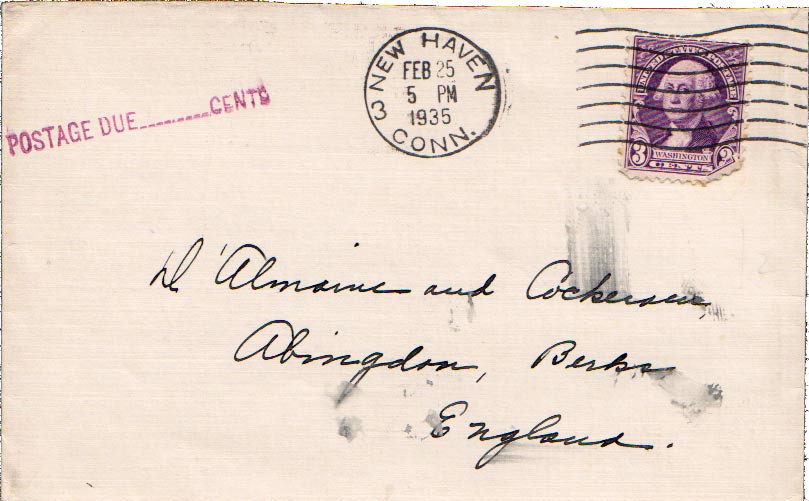 POSTAGE DUE________CENTS
NEW HAVEN
FEB 25
5 PM
1935
3
CONN.
UNITED STATES POSTAGE
3 WASHINGTON 3
CENTS
D'Almaine and
Abingdon, Berks
England.